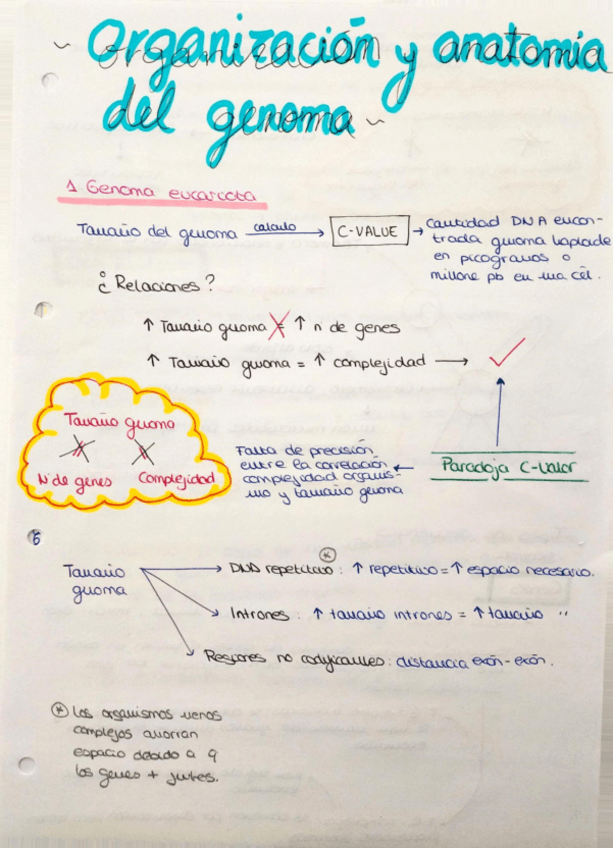 ~ Organización y anatomía
del genoma ~
1. Genoma eucariota
Tamaño del genoma calculo → C-VALUE → Cantidad DNA encon-
trada genoma haploide
en picogramos o
millone pb en una cél.
¿Relaciones?
↑ Tamaño genoma = ↑ n de genes
↑ Tamaño genoma = ↑ complejidad → ✓
Tamaño genoma
Nº de genes Complejidad
Falta de precisión
entre la correlación
complejidad organis-
mo y tamaño genoma
← Paradoja C-valor
Tamaño
genoma
→ DNA repetitivo * : ↑ repetitivo = ↑ espacio necesario.
Intrones : ↑ tamaño intrones = ↑ tamaño "
Regiones no codificantes : distancia exón-exón.
* Los organismos menos
complejos ahorran
espacio debido a q
los genes + juntos.